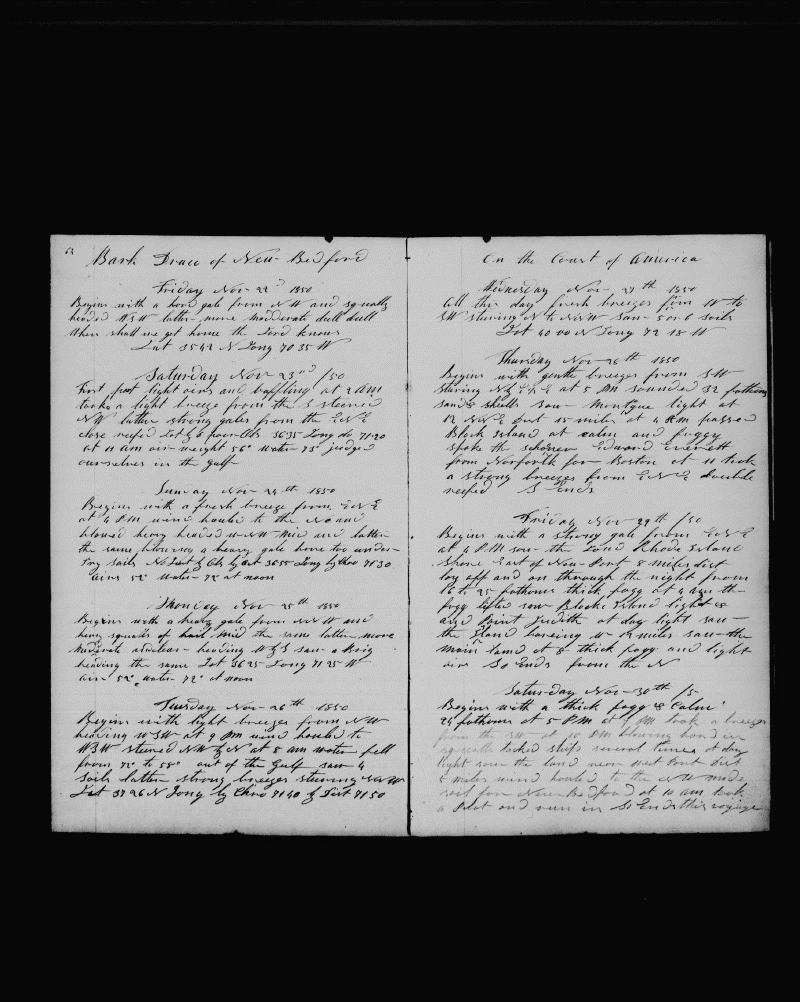 Bark Draco of New Bedford
Friday Nov 22d 1850
Begins with a hard gale from NW and squally
headed WSW latter more Modderate dull dull
When shall we get home the Lord knows
Lat 35 42 N Long 70 35 W
Saturday Nov 23rd /50
First part light airs and baffling at 2 AM
took a light breeze from the S steered
NW latter strong gales from the ENE
close reefed Lat by Obs 36 35 Long do 71 20
at 11 am air weight 56° water 75° judged
ourselves in the Gulf
Sunday Nov 24th 1850
Begins with a fresh breeze from ENE
at 4 PM wind hauled to the N and
blowed heavy headed W NW Mid and latter
the same blowing a heavy gale hove too under
Try Sails No Lat by Obs by Act 36 55 Long by Chro 71 30
air 52° water 72° at noon
Monday Nov 25th 1850
Begins with a heavy gale from NW and
heavy squalls of hail Mid the same latter more
Moderate and clear heading W by S saw a Brig
heading the same Lat 36 25 Long 71 25 W
air 52° water 72° at noon
Tuesday Nov 26th 1850
Begins with light breezes from NW
heading WSW at 9 PM wind hauled to
WSW steered NW by N at 8 am water fell
from 72° to 55° out of the Gulf saw 4
Sails latter strong breezes steering
Lat 37 26 N Long by Chro 71 40 by Dist 71 50
On the Coast of America
Wednesday Nov 27th 1850
All this day fresh breezes from W to
SW stering N to NNW saw 5 or 6 sails
Lat 40 00 N Long 72 15 W
Thursday Nov 28th 1850
Begins with gentle breezes from SW
stering at 5 PM sounded 32 fathoms
sand & shells saw Montque light at
12 dist 15 miles at 4 AM passed
Block Island at calm and foggy
spoke the schooner Edward Everett
from Norforth for Boston at 11 took
a strong breezes from ENE double
reefed So Ends
Friday Nov 29th /50
Begins with a strong gale from ENE
at 4 PM saw the Land Rhode Island
Shore East of New Port 8 miles dist
lay off and on through the night from
16 to 25 fathoms thick fogg at 4 am the
fogg lifted saw Block Island light &
and Point Judith at day light saw
the Island bareing W 12 miles saw the
main land at 8 thick fogg and light
airs So Ends from the N
Saturday Nov 30th /5
Begins with a thick fogg & Calm
24 fathoms at 5 PM at 9 PM took a breeze
from the SW at 10 PM blowing hard and
squally tacked ship several times at day
light saw the land near West Port dist
8 miles wind hauled to the NW made
sail for New Bedford at 10 am took
a Pilot and run in So Ends this voyage